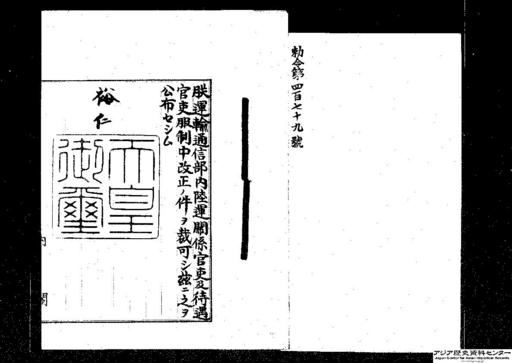 勅令第四百七十九號
朕運輸通信部內陸運關係官吏及待遇
官吏服制中改正ノ件ヲ裁可シ茲ニ之ヲ
公布セシム
裕仁
天皇
御璽
內
閣
アジア歴史資料センター
Japan Center for Asian Historical Records